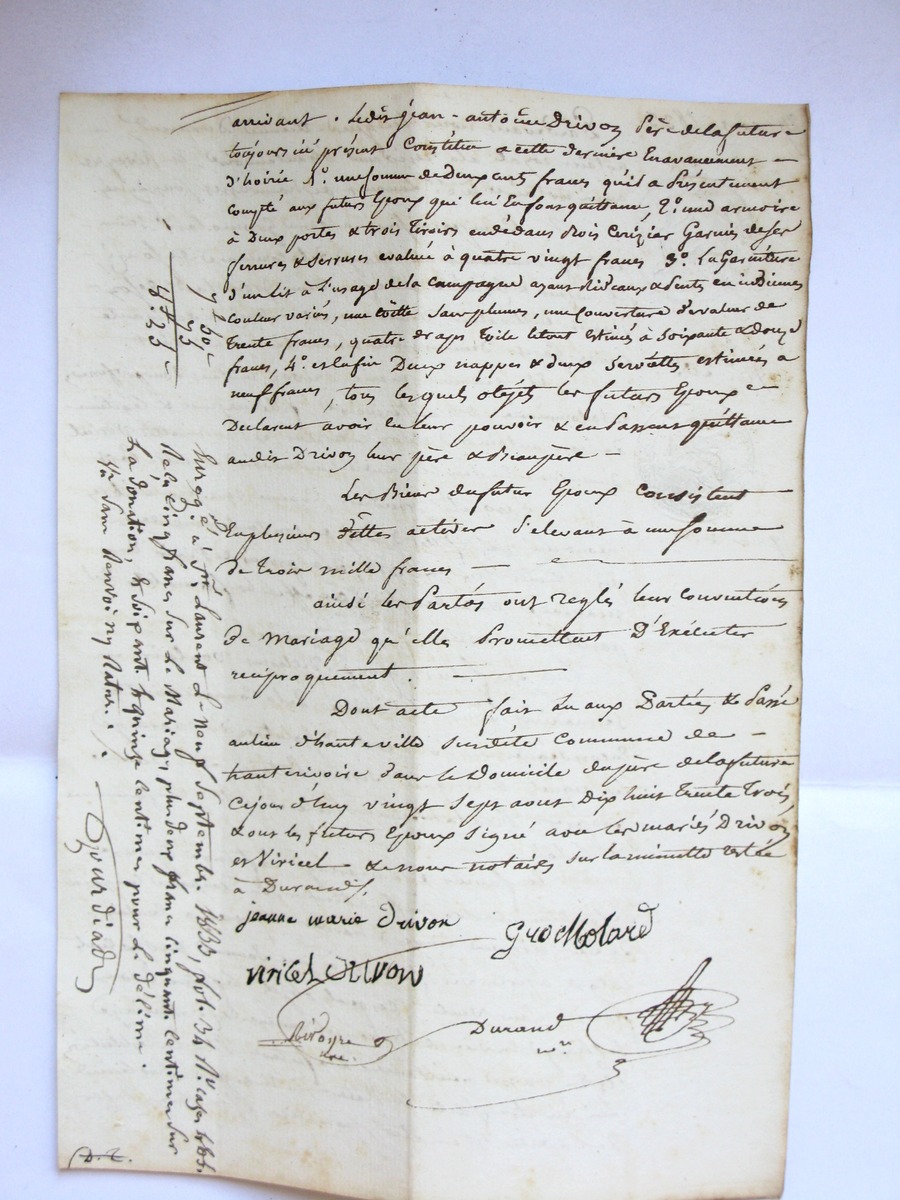 arrivant. Ledit jean-antoine Drivon Père de la future
toujours ici présent Constitue a cette dernière En avancement
d'hoirie 1.° une somme de Deux cents francs qu'il a Présentement
compté aux futurs Epoux qui lui En font quittance, 2.° une armoire
à Deux portes & trois tiroirs en dedans Bois Cerizier Garnie de ses
ferrures & Serrures evaluée à quatre vingt francs 3.° La Garniture
d'un Lit à L'usage de la campagne ayant Rideaux & Pente en indienne
couleur variés, une Coëtte sans plumes, une couverture de valeur de
trente francs, quatre draps toile le tout estimés à Soixante & douze
francs, 4.° et Enfin Deux nappes & deux serviettes estimées a
neuf francs, tous lesquels objets les futurs Epoux
Declarent avoir en leur pouvoir & en Passent quittance
audit Drivon leur père & Beaupère –
Les Biens du futur Epoux consistent
En plusieurs dettes actives s'elevant à une somme
de trois mille francs –
ainsi les Parties ont reglés leur conventions
de mariage qu'elles Promettent D'Exécuter
reciproquement.
Dont acte fait Lu aux Parties & Passé
au lieu d'hauteville susdite Commune de –
hauterivoire dans le Domicile du père de la future
Ce jour d'huy vingt sept aout Dix huit trente trois,
& ont les futurs Epoux signé avec les mariés Drivon
et Viricel & nous notaires sur la minutte restée
à Durand.
jeanne marie drivon
viricel drivon
Durand
n.re
7 50
75
8 25
Enregg. é à S.t Laurent Le Neuf Septembre 1833, fol. 34
Relu cinq francs sur Le Mariage, plus deux francs cinquante centimes sur
La donation, & soixante & quinze centimes pour Le décime.
Sans Renvoi ny Rature.
D. t.